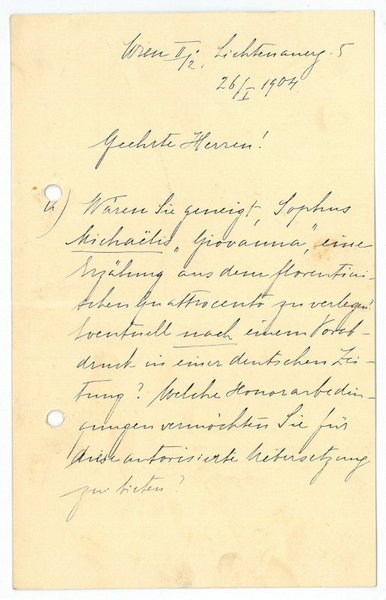 Wien II/2, Lichtenauerg. 5
26/I 1904
Geehrte Herren!
a) Wären Sie geneigt, Sophus
Michaëlis „Giovanna“, eine
Erzählung aus dem florentini-
schen Quattrocento, zu verlegen?
Eventuell nach einem Vorab-
druck in einer deutschen Zei-
tung? Welche Honorarbedin-
gungen vermöchten Sie für
diese autorisierte Uebersetzung
zu bieten?